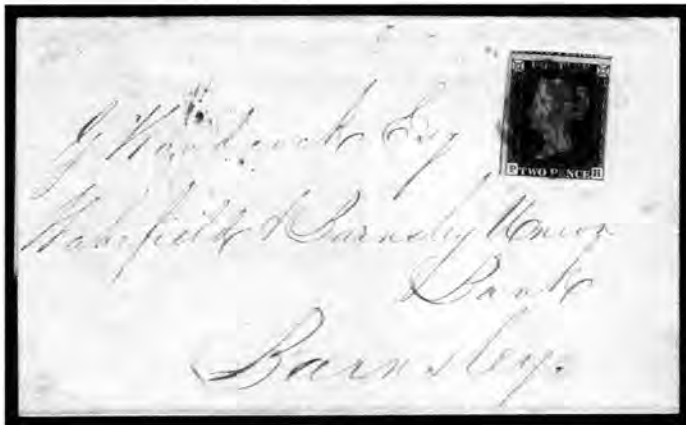 POSTAGE
TWO PENCE
P H
G Handcock Esq
Wakefield & Barnsley Union
Bank
Barnsley.